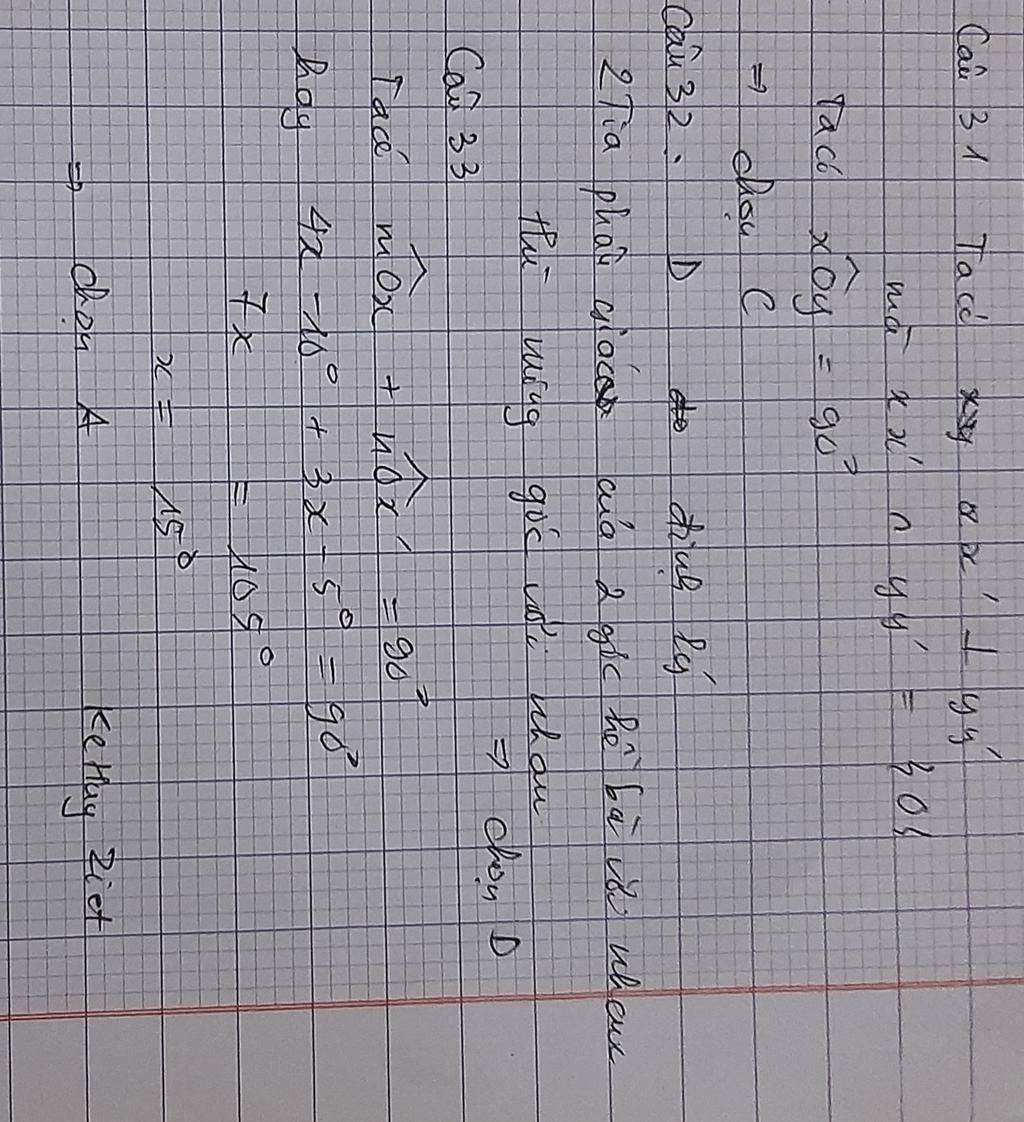 Câu 31 Ta có xx' ⊥ yy'
mà xx' ∩ yy' = {O}
Ta có xOy = 90°
⇒ chọn C
Câu 32: D định lý
2 Tia phân giác của 2 góc kề bù với nhau
thì vuông góc với nhau
⇒ chọn D
Câu 33
Ta có mOx + nOx' = 90°
hay 4x - 10° + 3x - 5° = 90°
7x = 105°
x = 15°
⇒ chọn A
KeHuy Ziet